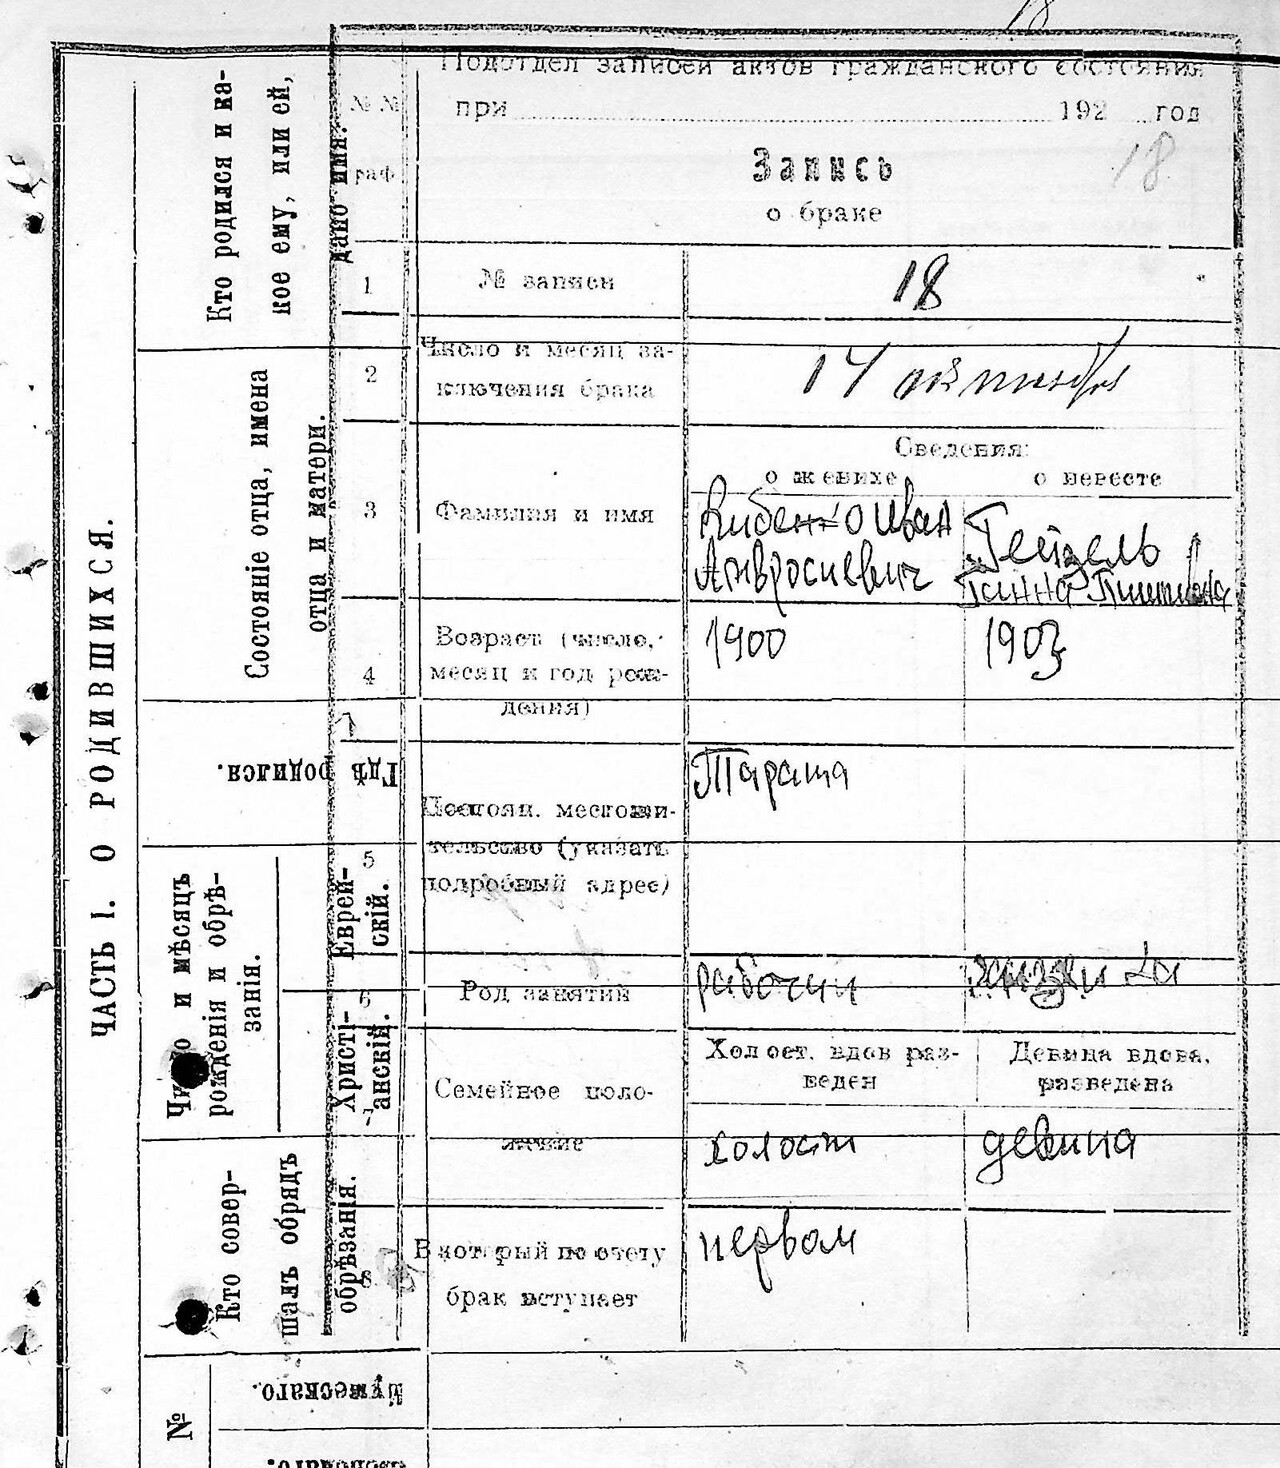 18
Подотдел записей актов гражданского состояния
при 192 год
№№
граф
Запись
18
о браке
1
№ записи
18
2
Число и месяц за-
ключения брака
14 октября
Сведения:
о женихе
о невесте
3
Фамилия и имя
Иван
Амвросиевич
Гейдель
Ганна
4
Возраст (число,
месяц и год рож-
дения)
1900
1903
5
Постоян. местожи-
тельство (указать
подробный адрес)
Тараща
6
Род занятий
рабочий
7
Семейное поло-
жение
Холост. вдов раз-
веден
Девица вдова,
разведена
холост
девица
8
В который по счету
брак вступает
первом
ЧАСТЬ I. О РОДИВШИХСЯ.
Кто родился и ка-
кое ему, или ей,
дано имя.
Состоянiе отца, имена
отца и матери.
Гдѣ
родился.
Число и мѣсяцъ
рожденiя и обрѣ-
занiя.
Еврей-
скiй.
Христi-
анскiй.
Кто совер-
шалъ обрядъ
обрѣзанiя.
№
Мужескаго.